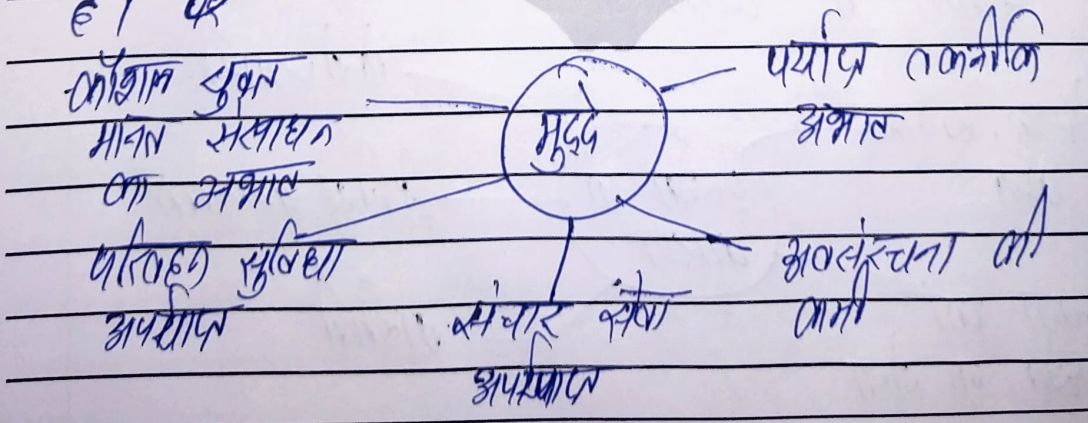 है। पर
कौशल युक्त
मानव संसाधन
का अभाव
मुद्दे
पर्याप्त तकनीकि
अभाव
परिवहन सुविधा
अपर्याप्त
संचार सेवा
अपर्याप्त
अवसंरचना की
कमी